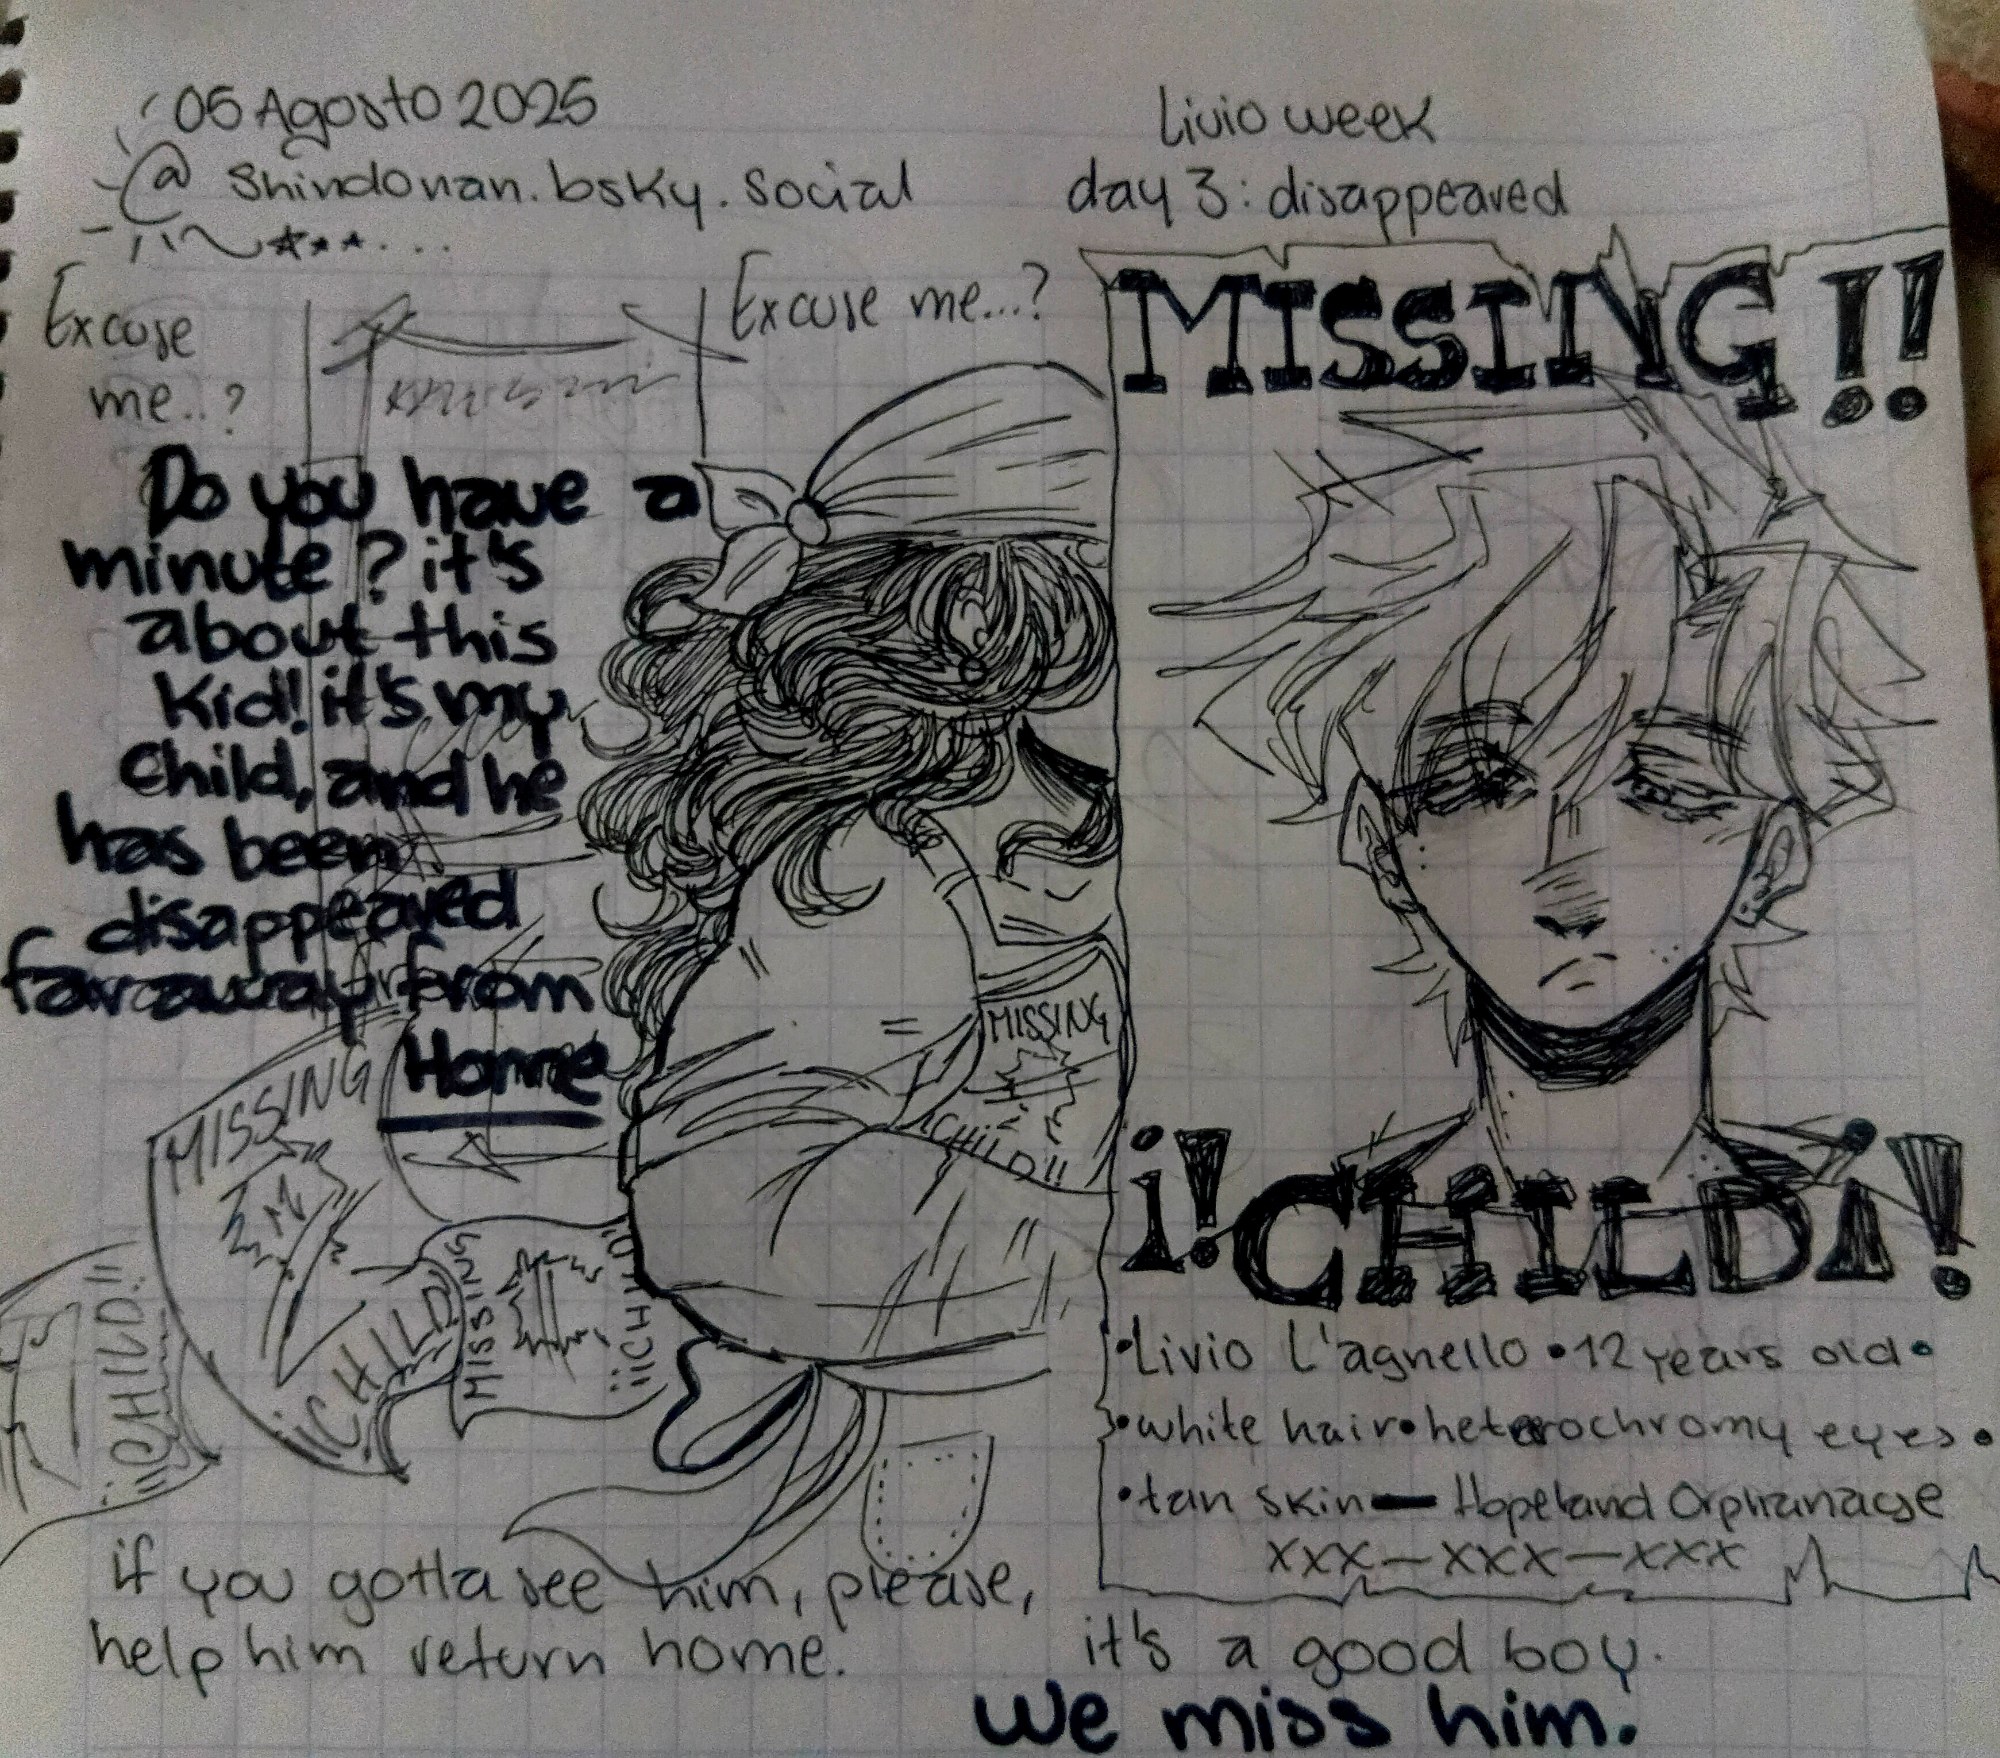 05 Agosto 2025
@shindonan.bsky.social
Livio week
day 3: disappeared
Excuse
me..?
Excuse me...?
Do you have a
minute? it's
about this
kid! it's my
child, and he
has been
disappeared
far away from
Home
MISSING!!
¡!CHILD¡!
•Livio L'agnello•12 years old•
•white hair•heterochromy eyes•
•tan skin—Hopeland Orphanage
xxx—xxx—xxx
MISSING
¡CHILD!!
MISSING
¡¡CHILD
MISSING
¡¡CHILD
¡¡CHILD!!
if you gotta see him, please,
help him return home.
it's a good boy.
we miss him.